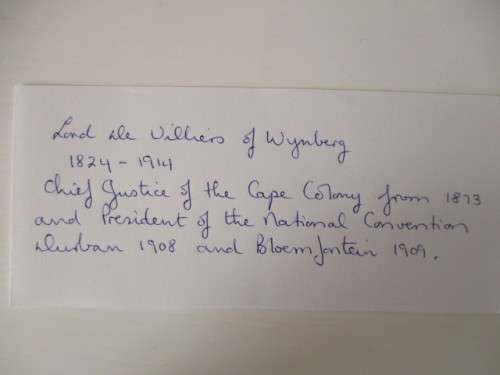 Lord de Villiers of Wynberg
1824 - 1914
Chief Justice of the Cape Colony from 1873
and President of the National Convention
Durban 1908 and Bloemfontein 1909.